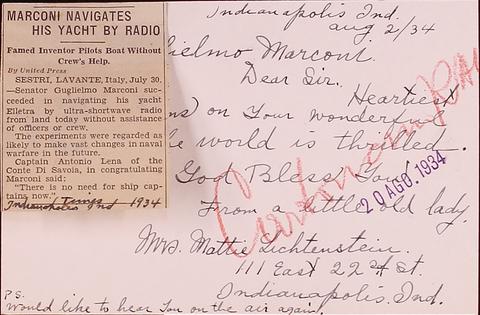 MARCONI NAVIGATES
HIS YACHT BY RADIO
Famed Inventor Pilots Boat Without
Crew's Help.
By United Press
SESTRI, LAVANTE, Italy, July 30.
—Senator Guglielmo Marconi suc-
ceeded in navigating his yacht
Elletra by ultra-shortwave radio
from land today without assistance
of officers or crew.
The experiments were regarded as
likely to make vast changes in naval
warfare in the future.
Captain Antonio Lena of the
Conte Di Savoia, in congratulating
Marconi said:
"There is no need for ship cap-
tains now."
Indianapolis Times
Ind 1934
Indianapolis Ind.
aug 2/34
lielmo Marconi.
Dear Sir.
Heartiest
ns) on Your wonderful
e world is thrilled.
God Bless You
20 AGO. 1934
From a little old lady.
Mrs. Mattie Lichtenstein.
111 East 22nd St.
Indianapolis. Ind.
P.S.
would like to hear You on the air again.